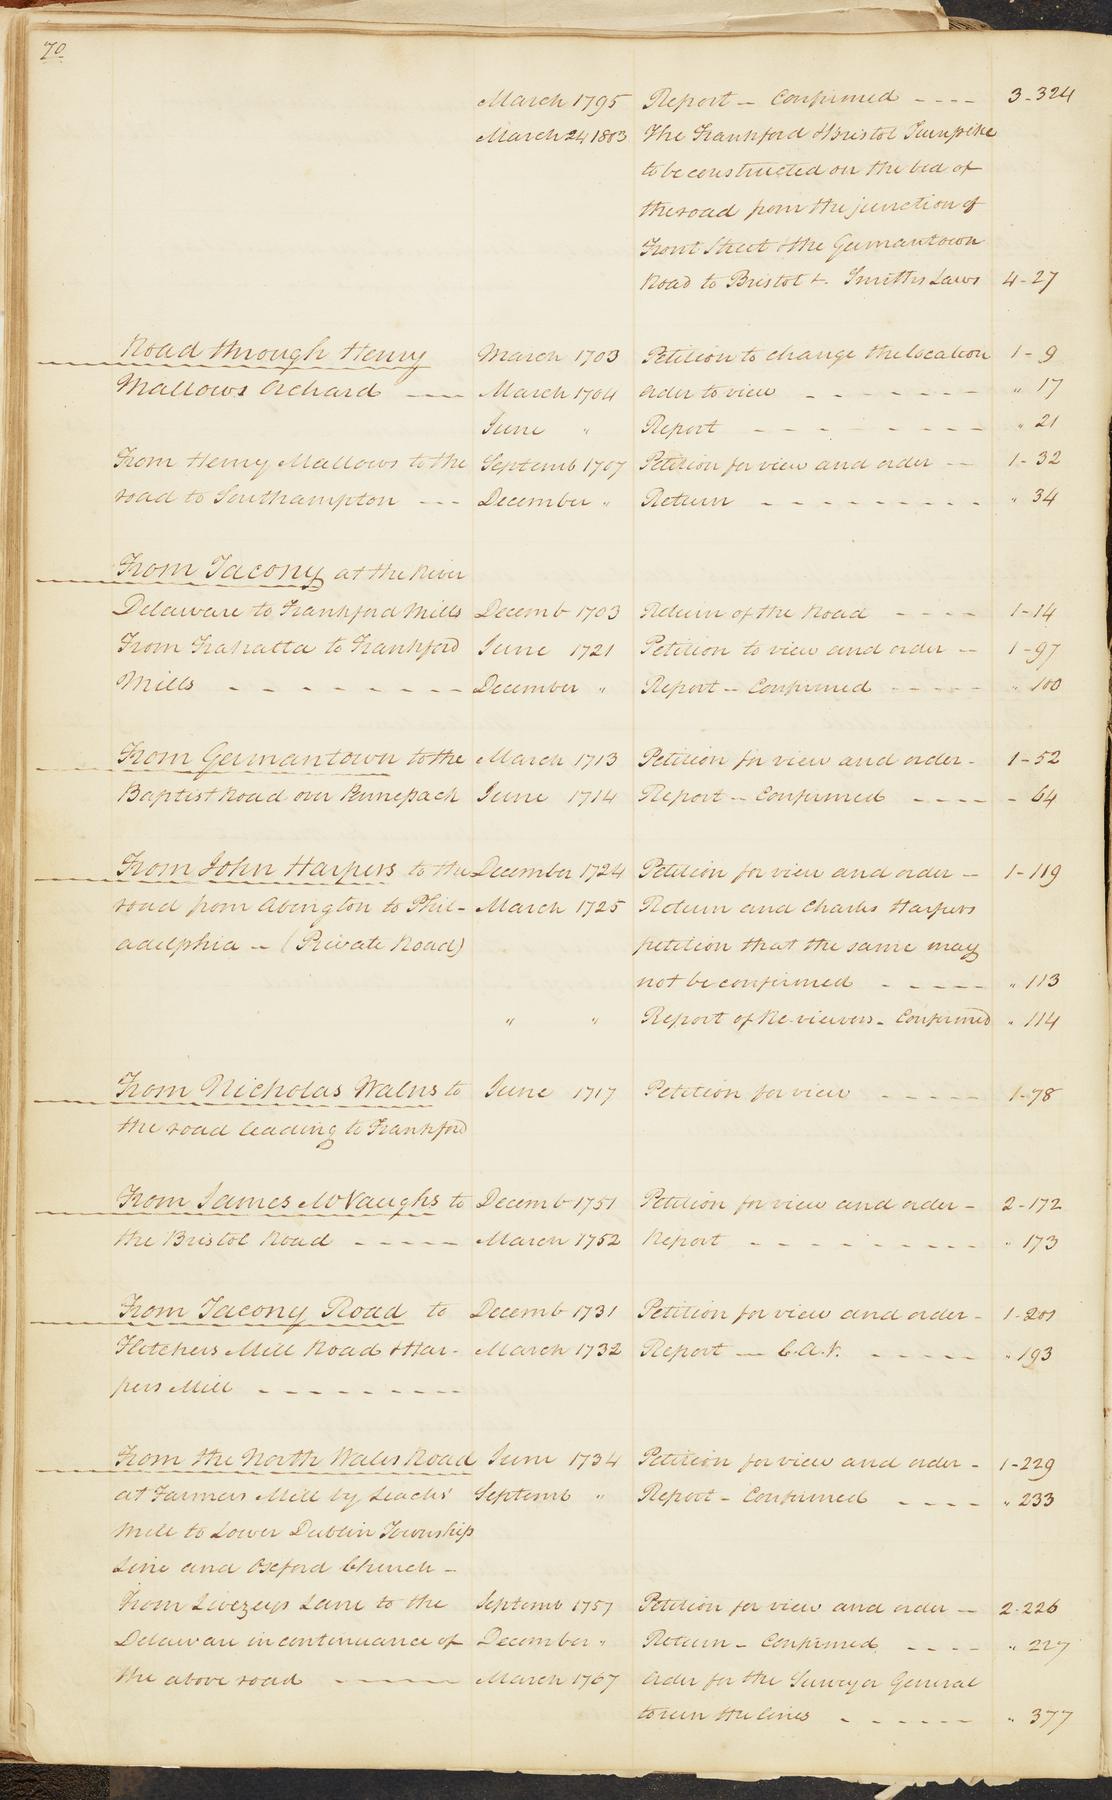 70
March 1795 Report -- Confirmed ---- 3-324
March 24 1803 The Frankford & Bristol Turnpike
to be constructed on the bed of
the road from the junction of
Front Street & the Germantown
Road to Bristol &. Smiths Laws 4-27
Road through Henry March 1703 Petition to change the location 1-9
Mallows Orchard ---- March 1704 Order to view ------- " 17
June " Report -------- " 21
From Henry Mallows to the Septemb 1707 Petition for view and order -- 1-32
road to Southampton --- December " Return --------- " 34
From Tacony at the River
Delaware to Frankford Mills Decemb 1703 Return of the Road ---- 1-14
From Trahatta to Frankford June 1721 Petition to view and order -- 1-97
Mills --------- December " Report -- Confirmed ----- " 100
From Germantown to the March 1713 Petition for view and order - 1-52
Baptist Road over Pennepach June 1714 Report -- Confirmed ---- - 64
From John Harpers to the December 1724 Petition for view and order -- 1-119
road from Abington to Phil- March 1725 Return and Charles Harpers
adelphia -- (Private Road) petition that the same may
not be confirmed ----- " 113
" " Report of Re-viewers - Confirmed " 114
From Nicholas Walns to June 1717 Petition for view ----- 1-78
the road leading to Frankford
From James McVaughs to Decemb 1751 Petition for view and order - 2-172
the Bristol Road ----- March 1752 Report --------- " 173
From Tacony Road to Decemb 1731 Petition for view and order - 1-201
Fletchers Mill Road & Har- March 1732 Report -- C.A.V. ----- " 193
pers Mill ---------
From the North Wales Road June 1734 Petition for view and order - 1-229
at Farmers Mill by Leachs' Septemb " Report - Confirmed ---- " 233
Mill to Lower Dublin Township
Line and Oxford Church -
From Livezeys Lane to the Septemb 1757 Petition for view and order -- 2-226
Delaware in continuance of December " Return - Confirmed ---- " 227
the above road ----- March 1767 Order for the Surveyor General
to run the lines ------ " 377